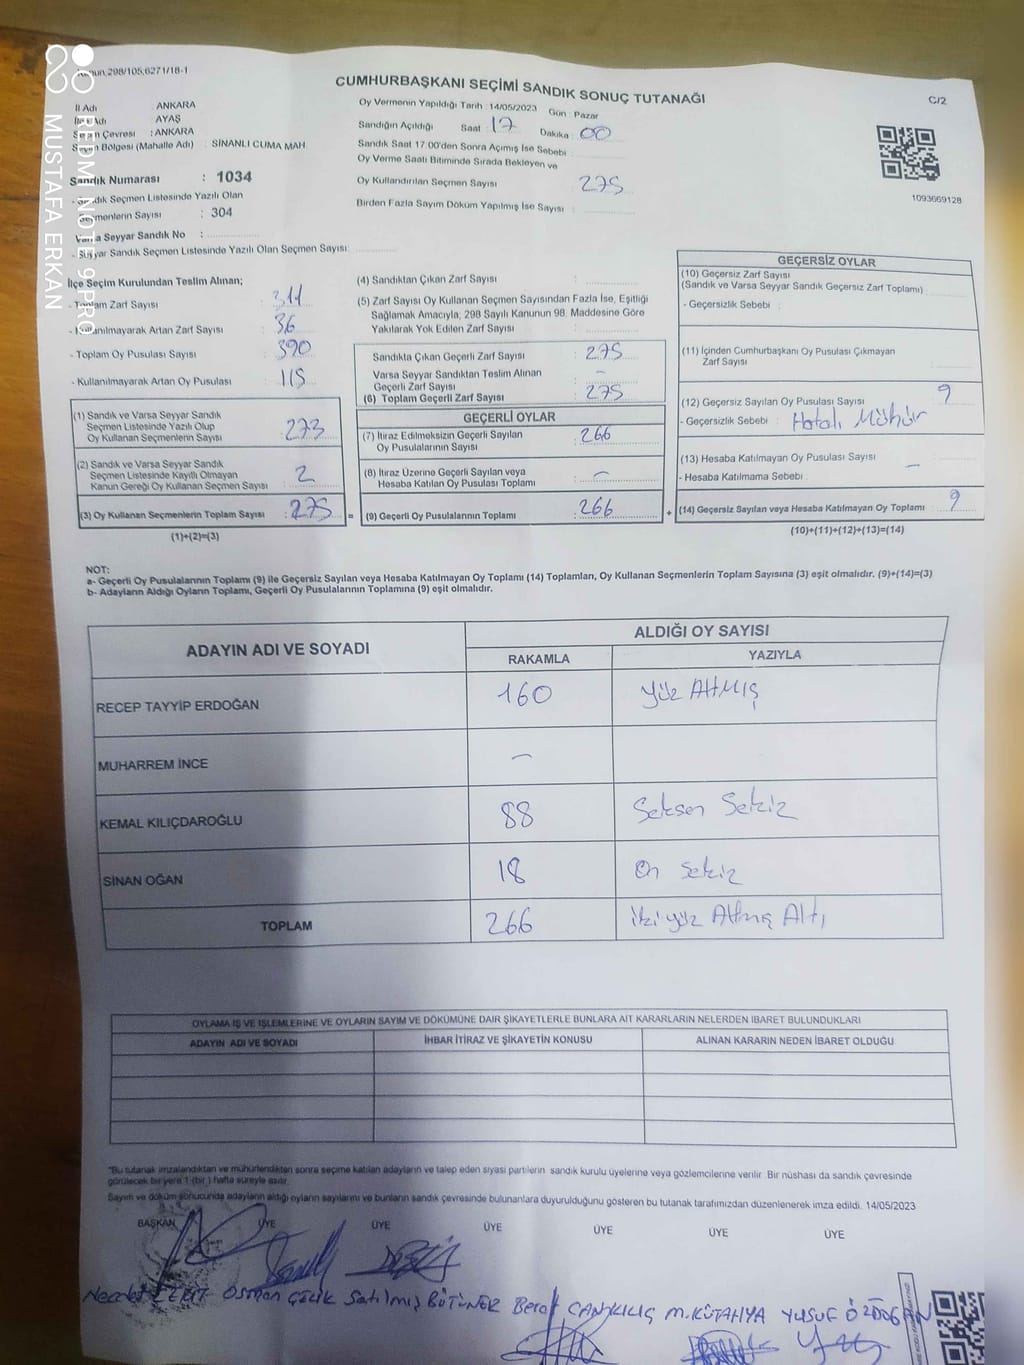 Kanun:298/105,6271/18-1
CUMHURBAŞKANI SEÇİMİ SANDIK SONUÇ TUTANAĞI
C/2
İl Adı ANKARA
İlçe Adı AYAŞ
Seçim Çevresi : ANKARA
Seçim Bölgesi (Mahalle Adı) : SİNANLI CUMA MAH.
Sandık Numarası : 1034
- Sandık Seçmen Listesinde Yazılı Olan
Seçmenlerin Sayısı : 304
Varsa Seyyar Sandık No :
- Seyyar Sandık Seçmen Listesinde Yazılı Olan Seçmen Sayısı:
Oy Vermenin Yapıldığı Tarih : 14/05/2023 Gün : Pazar
Sandığın Açıldığı Saat : 17 Dakika : 00
Sandık Saat 17.00'den Sonra Açımış İse Sebebi :
Oy Verme Saati Bitiminde Sırada Bekleyen ve
Oy Kullandırılan Seçmen Sayısı : 275
Birden Fazla Sayım Döküm Yapılmış İse Sayısı :
1093669128
İlçe Seçim Kurulundan Teslim Alınan;
- Toplam Zarf Sayısı : 311
- Kullanılmayarak Artan Zarf Sayısı : 36
- Toplam Oy Pusulası Sayısı : 390
- Kullanılmayarak Artan Oy Pusulası : 115
(1) Sandık ve Varsa Seyyar Sandık
Seçmen Listesinde Yazılı Olup
Oy Kullanan Seçmenlerin Sayısı : 273
(2) Sandık ve Varsa Seyyar Sandık
Seçmen Listesinde Kayıtlı Olmayan
Kanun Gereği Oy Kullanan Seçmen Sayısı : 2
(3) Oy Kullanan Seçmenlerin Toplam Sayısı : 275 =
(1)+(2)=(3)
(4) Sandıktan Çıkan Zarf Sayısı :
(5) Zarf Sayısı Oy Kullanan Seçmen Sayısından Fazla İse, Eşitliği
Sağlamak Amacıyla, 298 Sayılı Kanunun 98. Maddesine Göre
Yakılarak Yok Edilen Zarf Sayısı :
Sandıkta Çıkan Geçerli Zarf Sayısı : 275
Varsa Seyyar Sandıktan Teslim Alınan
Geçerli Zarf Sayısı : -
(6) Toplam Geçerli Zarf Sayısı : 275
GEÇERLİ OYLAR
(7) İtiraz Edilmeksizin Geçerli Sayılan
Oy Pusulalarının Sayısı : 266
(8) İtiraz Üzerine Geçerli Sayılan veya
Hesaba Katılan Oy Pusulası Toplamı : -
(9) Geçerli Oy Pusulalarının Toplamı : 266 +
GEÇERSİZ OYLAR
(10) Geçersiz Zarf Sayısı
(Sandık ve Varsa Seyyar Sandık Geçersiz Zarf Toplamı) :
- Geçersizlik Sebebi :
(11) İçinden Cumhurbaşkanı Oy Pusulası Çıkmayan
Zarf Sayısı :
(12) Geçersiz Sayılan Oy Pusulası Sayısı : 9
- Geçersizlik Sebebi : Hatalı Mühür
(13) Hesaba Katılmayan Oy Pusulası Sayısı : -
- Hesaba Katılmama Sebebi :
(14) Geçersiz Sayılan veya Hesaba Katılmayan Oy Toplamı : 9
(10)+(11)+(12)+(13)=(14)
NOT:
a- Geçerli Oy Pusulalarının Toplamı (9) ile Geçersiz Sayılan veya Hesaba Katılmayan Oy Toplamı (14) Toplamları, Oy Kullanan Seçmenlerin Toplam Sayısına (3) eşit olmalıdır. (9)+(14)=(3)
b- Adayların Aldığı Oyların Toplamı, Geçerli Oy Pusulalarının Toplamına (9) eşit olmalıdır.
ADAYIN ADI VE SOYADI ALDIĞI OY SAYISI
RAKAMLA YAZIYLA
RECEP TAYYİP ERDOĞAN 160 Yüz Altmış
MUHARREM İNCE -
KEMAL KILIÇDAROĞLU 88 Seksen Sekiz
SİNAN OĞAN 18 On Sekiz
TOPLAM 266 iki yüz Altmış Altı
OYLAMA İŞ VE İŞLEMLERİNE VE OYLARIN SAYIM VE DÖKÜMÜNE DAİR ŞİKAYETLERLE BUNLARA AİT KARARLARIN NELERDEN İBARET BULUNDUKLARI
ADAYIN ADI VE SOYADI İHBAR İTİRAZ VE ŞİKAYETİN KONUSU ALINAN KARARIN NEDEN İBARET OLDUĞU
"Bu tutanak imzalandıktan ve mühürlendikten sonra seçime katılan adayların ve talep eden siyasi partilerin sandık kurulu üyelerine veya gözlemcilerine verilir. Bir nüshası da sandık çevresinde
görülecek bir yere 1 (bir ) hafta süreyle asılır.
Sayım ve döküm sonucunda adayların aldığı oyların sayılarını ve bunların sandık çevresinde bulunanlara duyurulduğunu gösteren bu tutanak tarafımızdan düzenlenerek imza edildi. 14/05/2023
BAŞKAN ÜYE ÜYE ÜYE ÜYE ÜYE ÜYE
Osman ÇELİK Satılmış BÜTÜNER Berat CANKILIÇ M. KÜTAHYA YUSUF ÖZDOĞAN
REDMI NOTE 9 PRO
MUSTAFA ERKAN